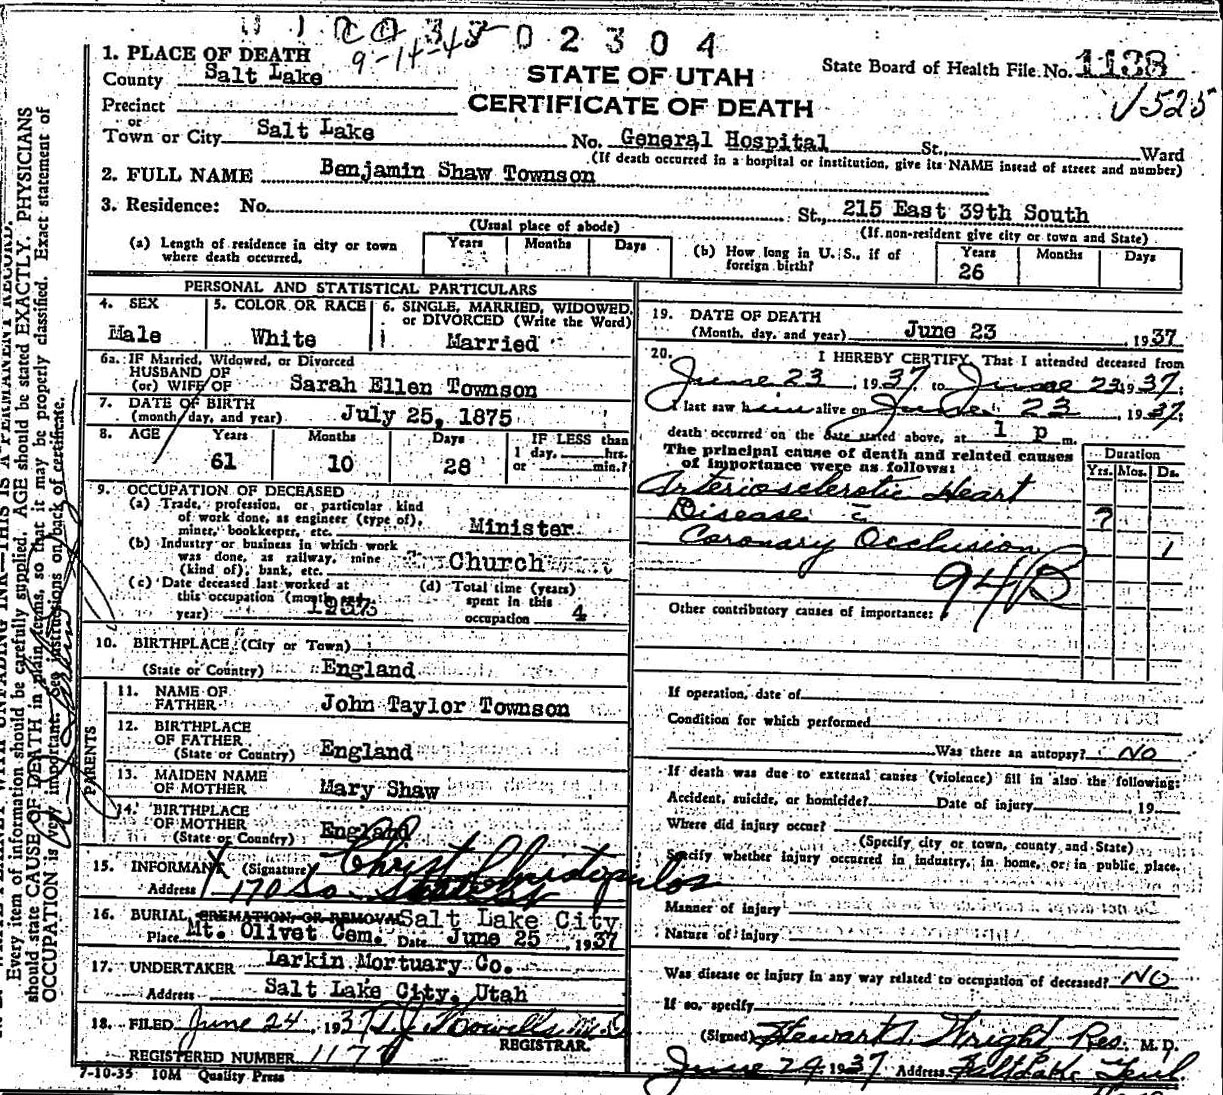 02304
9-14-43
1. PLACE OF DEATH
County Salt Lake
STATE OF UTAH
CERTIFICATE OF DEATH
State Board of Health File No. 1138
√525
Precinct
or
Town or City Salt Lake No. General Hospital St., Ward
(If death occurred in a hospital or institution, give its NAME insead of street and number)
2. FULL NAME Benjamin Shaw Townson
3. Residence: No. St., 215 East 39th South
(Usual place of abode) (If non-resident give city or town and State)
(a) Length of residence in city or town where death occurred. Years Months Days
(b) How long in U. S., if of foreign birth? Years 26 Months Days
PERSONAL AND STATISTICAL PARTICULARS
4. SEX Male
5. COLOR OR RACE White
6. SINGLE, MARRIED, WIDOWED, or DIVORCED (Write the Word) Married
6a. IF Married, Widowed, or Divorced
HUSBAND OF
(or) WIFE OF Sarah Ellen Townson
7. DATE OF BIRTH
(month, day, and year) July 25, 1875
8. AGE Years 61 Months 10 Days 28 IF LESS than 1 day, hrs. or min.?
9. OCCUPATION OF DECEASED
(a) Trade, profession, or particular kind
of work done, as engineer (type of),
miner, bookkeeper, etc. Minister
(b) Industry or business in which work
was done, as railway, mine
(kind of), bank, etc. Church
(c) Date deceased last worked at
this occupation (month and
year) 1937
(d) Total time (years)
spent in this
occupation 4
10. BIRTHPLACE (City or Town)
(State or Country) England
PARENTS
11. NAME OF
FATHER John Taylor Townson
12. BIRTHPLACE
OF FATHER
(State or Country) England
13. MAIDEN NAME
OF MOTHER Mary Shaw
14. BIRTHPLACE
OF MOTHER
(State or Country) England
15. INFORMANT (Signature)
Address 170 So
16. BURIAL, CREMATION, OR REMOVAL Salt Lake City
Place Mt. Olivet Cem. Date June 25, 1937
17. UNDERTAKER Larkin Mortuary Co.
Address Salt Lake City, Utah
18. FILED June 24, 1937
REGISTRAR.
REGISTERED NUMBER 1177
7-10-35 10M Quality Press
19. DATE OF DEATH
(Month, day, and year) June 23, 1937
20. I HEREBY CERTIFY, That I attended deceased from
June 23, 1937 to June 23 1937;
I last saw him alive on June 23, 1937;
death occurred on the date stated above, at 1 p m.
The principal cause of death and related causes
of importance were as follows:
Duration
Yrs. Mos. Ds.
Arteriosclerotic Heart
Disease c̄ ?
Coronary Occlusion 1
94B
Other contributory causes of importance:
If operation, date of
Condition for which performed
Was there an autopsy? No
If death was due to external causes (violence) fill in also the following:
Accident, suicide, or homicide? Date of injury 19
Where did injury occur?
(Specify city or town, county and State)
Specify whether injury occurred in industry, in home, or in public place.
Manner of injury
Nature of injury
Was disease or injury in any way related to occupation of deceased? No
If so, specify
(Signed) Stewart A. Wright Res. M. D.
June 24 1937 Address Salt Lake
Every item of information should be carefully supplied. AGE should be stated EXACTLY. PHYSICIANS
should state CAUSE OF DEATH in plain terms, so that it may be properly classified. Exact statement of
OCCUPATION is very important. See instructions on back of certificate.